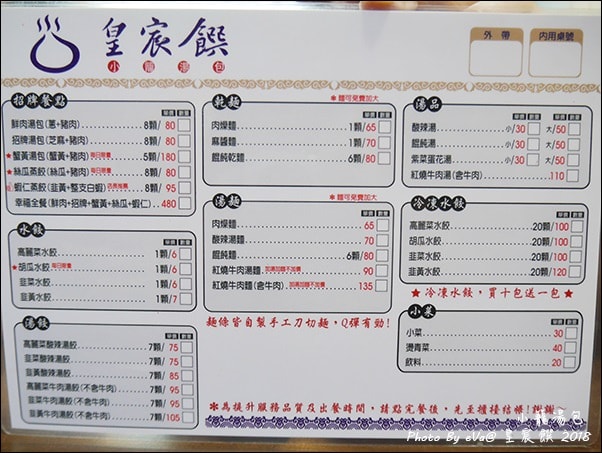 皇宸饌
小籠湯包
外帶
內用桌號
招牌餐點
單價 數量
鮮肉湯包(蔥+豬肉) 8顆/ 80
招牌湯包(芝麻+豬肉) 8顆/ 80
★蟹黃湯包(蟹黃+豬肉)每日限量 5顆/ 180
★絲瓜蒸餃(絲瓜+豬肉)每日限量 8顆/ 80
蝦仁蒸餃(韭黃+整支白蝦) 8顆/ 95
幸福全餐(鮮肉+招牌+蟹黃+絲瓜+蝦仁) 480
水餃
單價 數量
高麗菜水餃 1顆/6
★胡瓜水餃每日限量 1顆/6
韭菜水餃 1顆/6
韭黃水餃 1顆/7
湯餃
單價 數量
高麗菜酸辣湯餃 7顆/ 75
韭菜酸辣湯餃 7顆/ 75
韭黃酸辣湯餃 7顆/ 85
高麗菜牛肉湯餃(不含牛肉) 7顆/ 95
韭菜牛肉湯餃(不含牛肉) 7顆/ 95
韭黃牛肉湯餃(不含牛肉) 7顆/105
乾麵
＊麵可免費加大
單價 數量
肉燥麵 1顆/65
麻醬麵 1顆/70
餛飩乾麵 6顆/80
湯麵
＊麵可免費加大
單價 數量
肉燥麵 65
酸辣湯麵 70
餛飩麵 6顆/80
紅燒牛肉湯麵加湯加麵不加價 90
紅燒牛肉麵(含牛肉)加湯加麵不加價 135
麵條皆自製手工刀切麵，Q彈有勁!
湯品
單價 數量 單價 數量
酸辣湯 小/30 大/50
餛飩湯 小/30 大/50
紫菜蛋花湯 小/30 大/50
紅燒牛肉湯(含牛肉) 110
冷凍水餃
單價 數量
高麗菜水餃 20顆/100
胡瓜水餃 20顆/100
韭菜水餃 20顆/100
韭黃水餃 20顆/120
★冷凍水餃，買十包送一包★
小菜
單價 數量
小菜 30
燙青菜 40
飲料 20
＊為提升服務品質及出餐時間，請點完餐後，先至櫃檯結帳!謝謝
小籠湯包
Photo by eVa@ 皇宸饌 2018